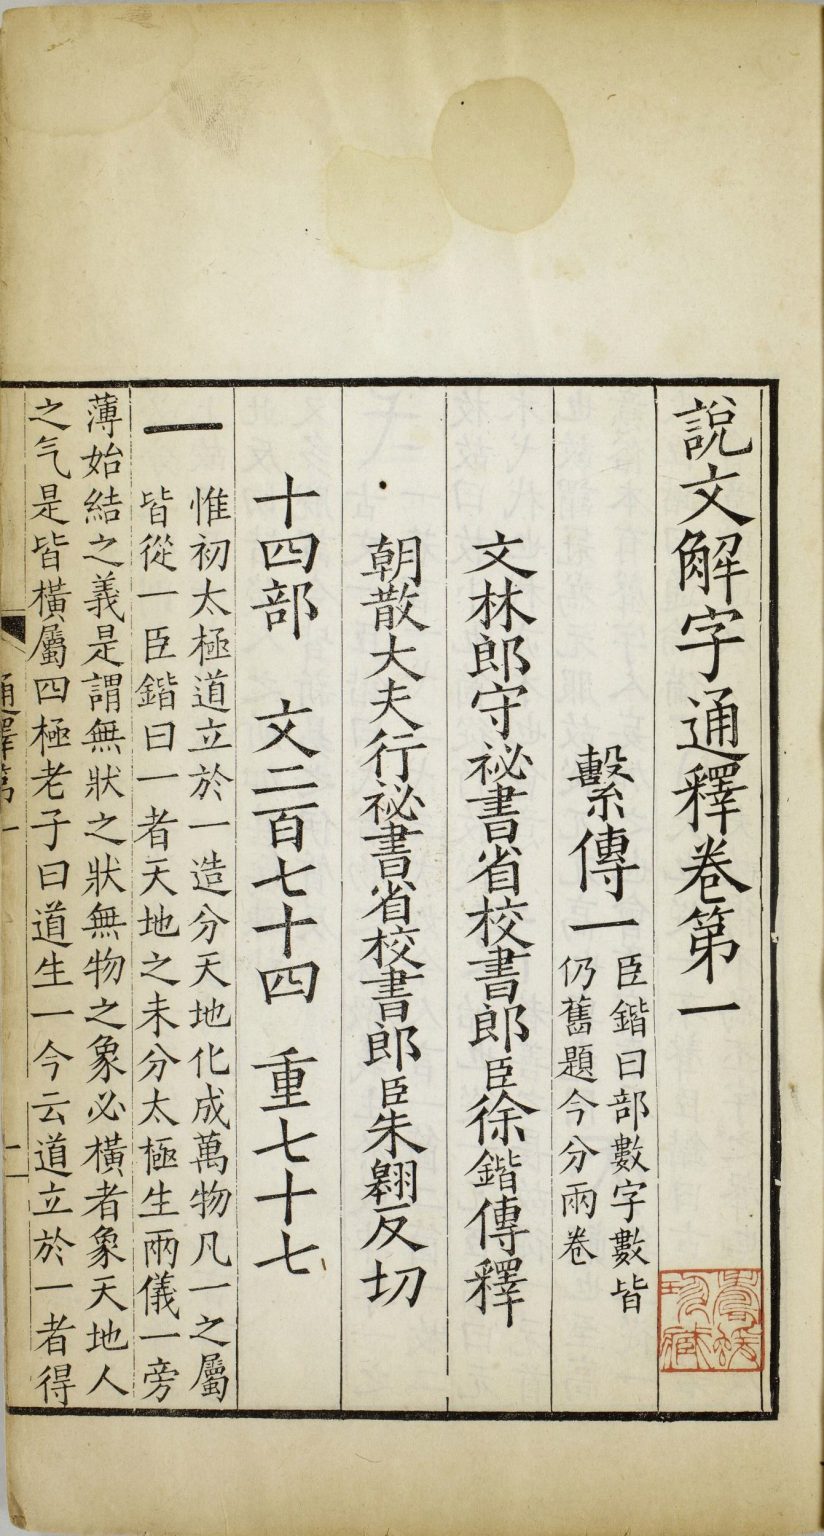 說文解字通釋卷第一
繫傳一
臣鍇曰部數字數皆
仍舊題今分兩卷
文林郎守祕書省校書郎臣徐鍇傳釋
朝散大夫行祕書省校書郎臣朱翶反切
十四部 文二百七十四 重七十七
一
惟初太極道立於一造分天地化成萬物凡一之屬
皆從一臣鍇曰一者天地之未分太極生兩儀一旁
薄始結之義是謂無狀之狀無物之象必橫者象天地人
之气是皆橫屬四極老子曰道生一今云道立於一者得
通釋第一